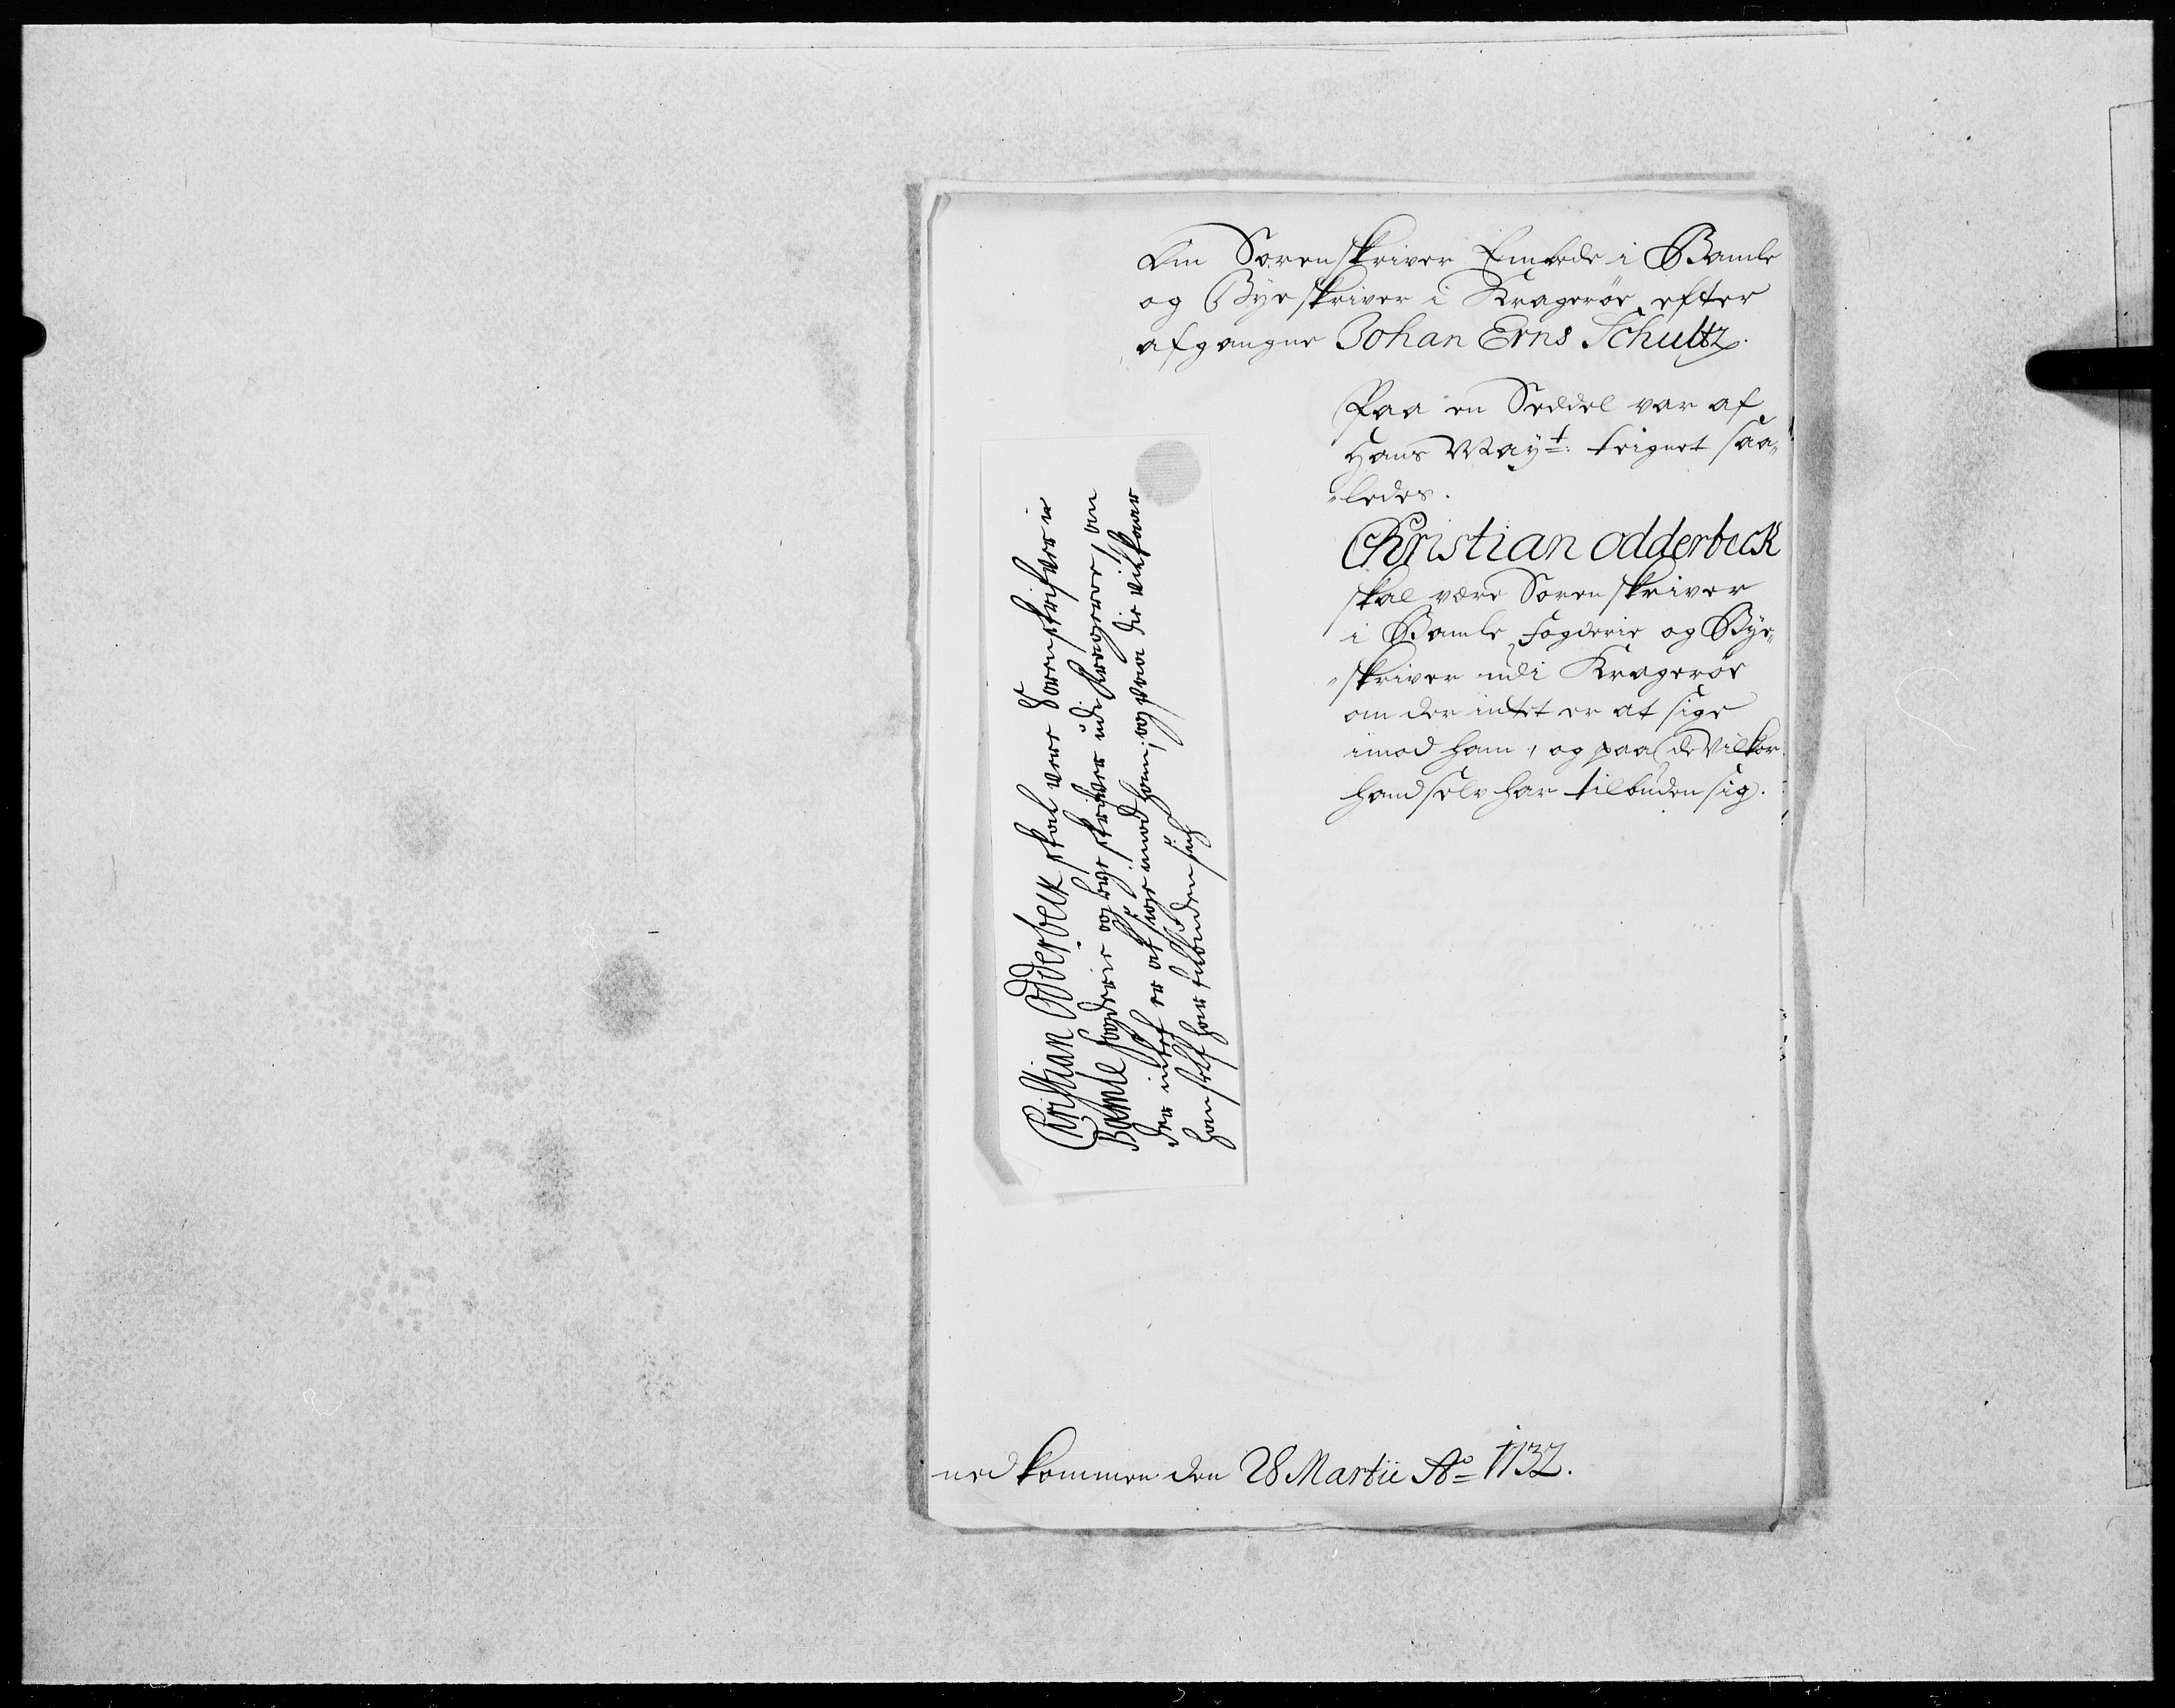 Om Sorenskriver Embede i Bamle
og Byeskriver i Kragerøe, efter
afgangne Johan Erns Schultz.
Paa en Seddel var af
Hans Mayt: teignet saa„
„ledes.
Christian Odderbeck
skal være Sorenskriver
i Bamle Fogderie og Bye„
„skriver udi Kragerøe
om der intet er at sige
imod ham, og paa de Vilkor
hand selv har tilbuden sig.
Christian Odderbeck skal were Sorenskrifwer i
Bamle fogderie og bye skriwer udi Krageröe, om
der intet er at sige imod ham, og paa die vilkaar
han self har tilbuden sich
nedkommen den 28 Martii Ao 1732.